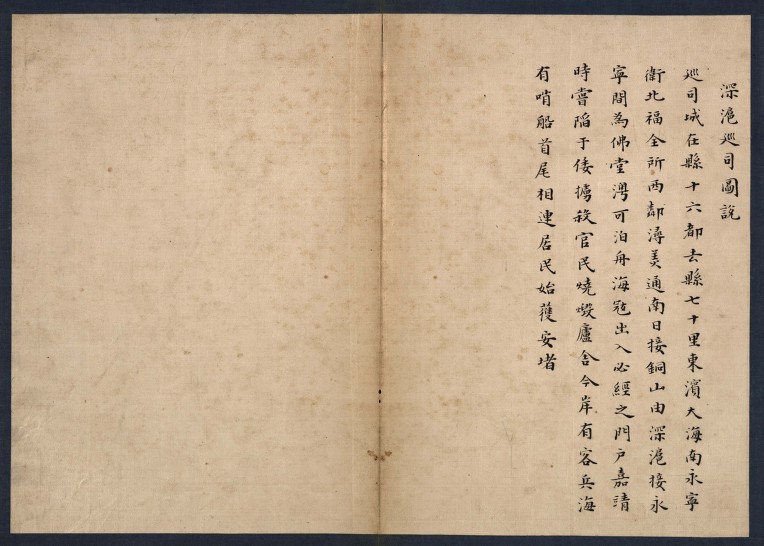 深滬巡司圖說
巡司城在縣十六都去縣七十里東濱大海南永寧
衛北福全所西鄰潯美通南日接銅山由深滬接永
寧間為佛堂灣可泊舟海寇出入必經之門戶嘉靖
時嘗陷于倭擄殺官民燒燬廬舍今岸有客兵海
有哨船首尾相連居民始獲安堵